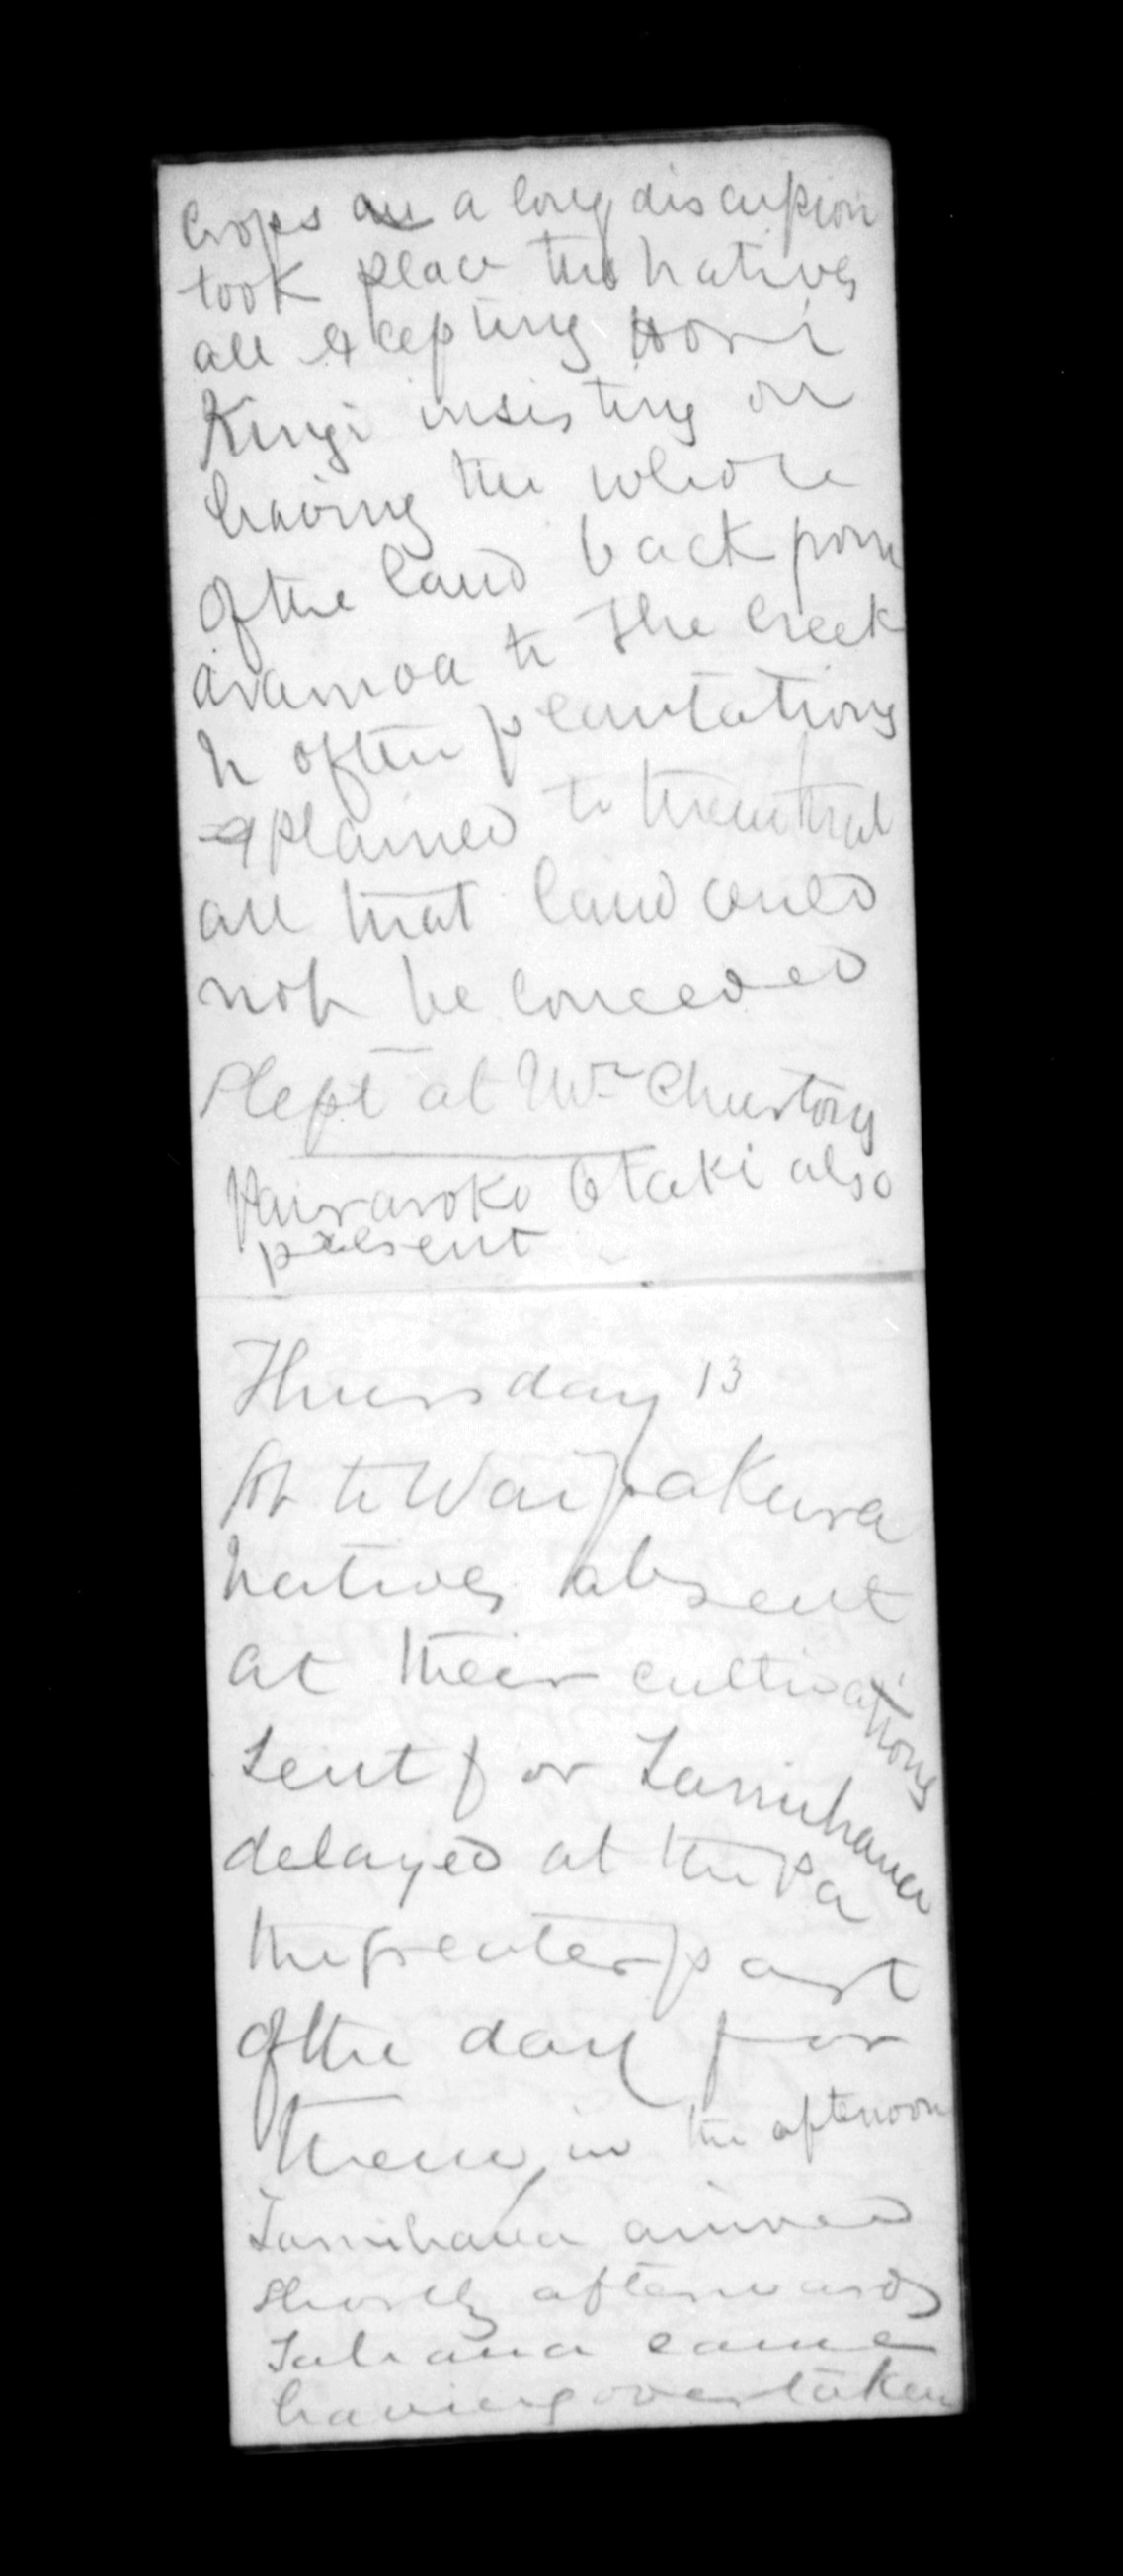 Crops a long discussion
took place the natives
all excepting Hori
Kingi insisting on
having the whole
of the land back from
aramoa to the Creek
N of the plantations
explained to them that
all that land could
not be conceded
Slept at Mr Churtons
Otaki also
present
Thursday 13
to Waipakura
natives absent
at their cultivations
sent for Tamihana
delayed at the Pa
the greater part
of the day for
them, in the afternoon
Tamihana arrived
shortly afterwards
Tahana came
having overtaken